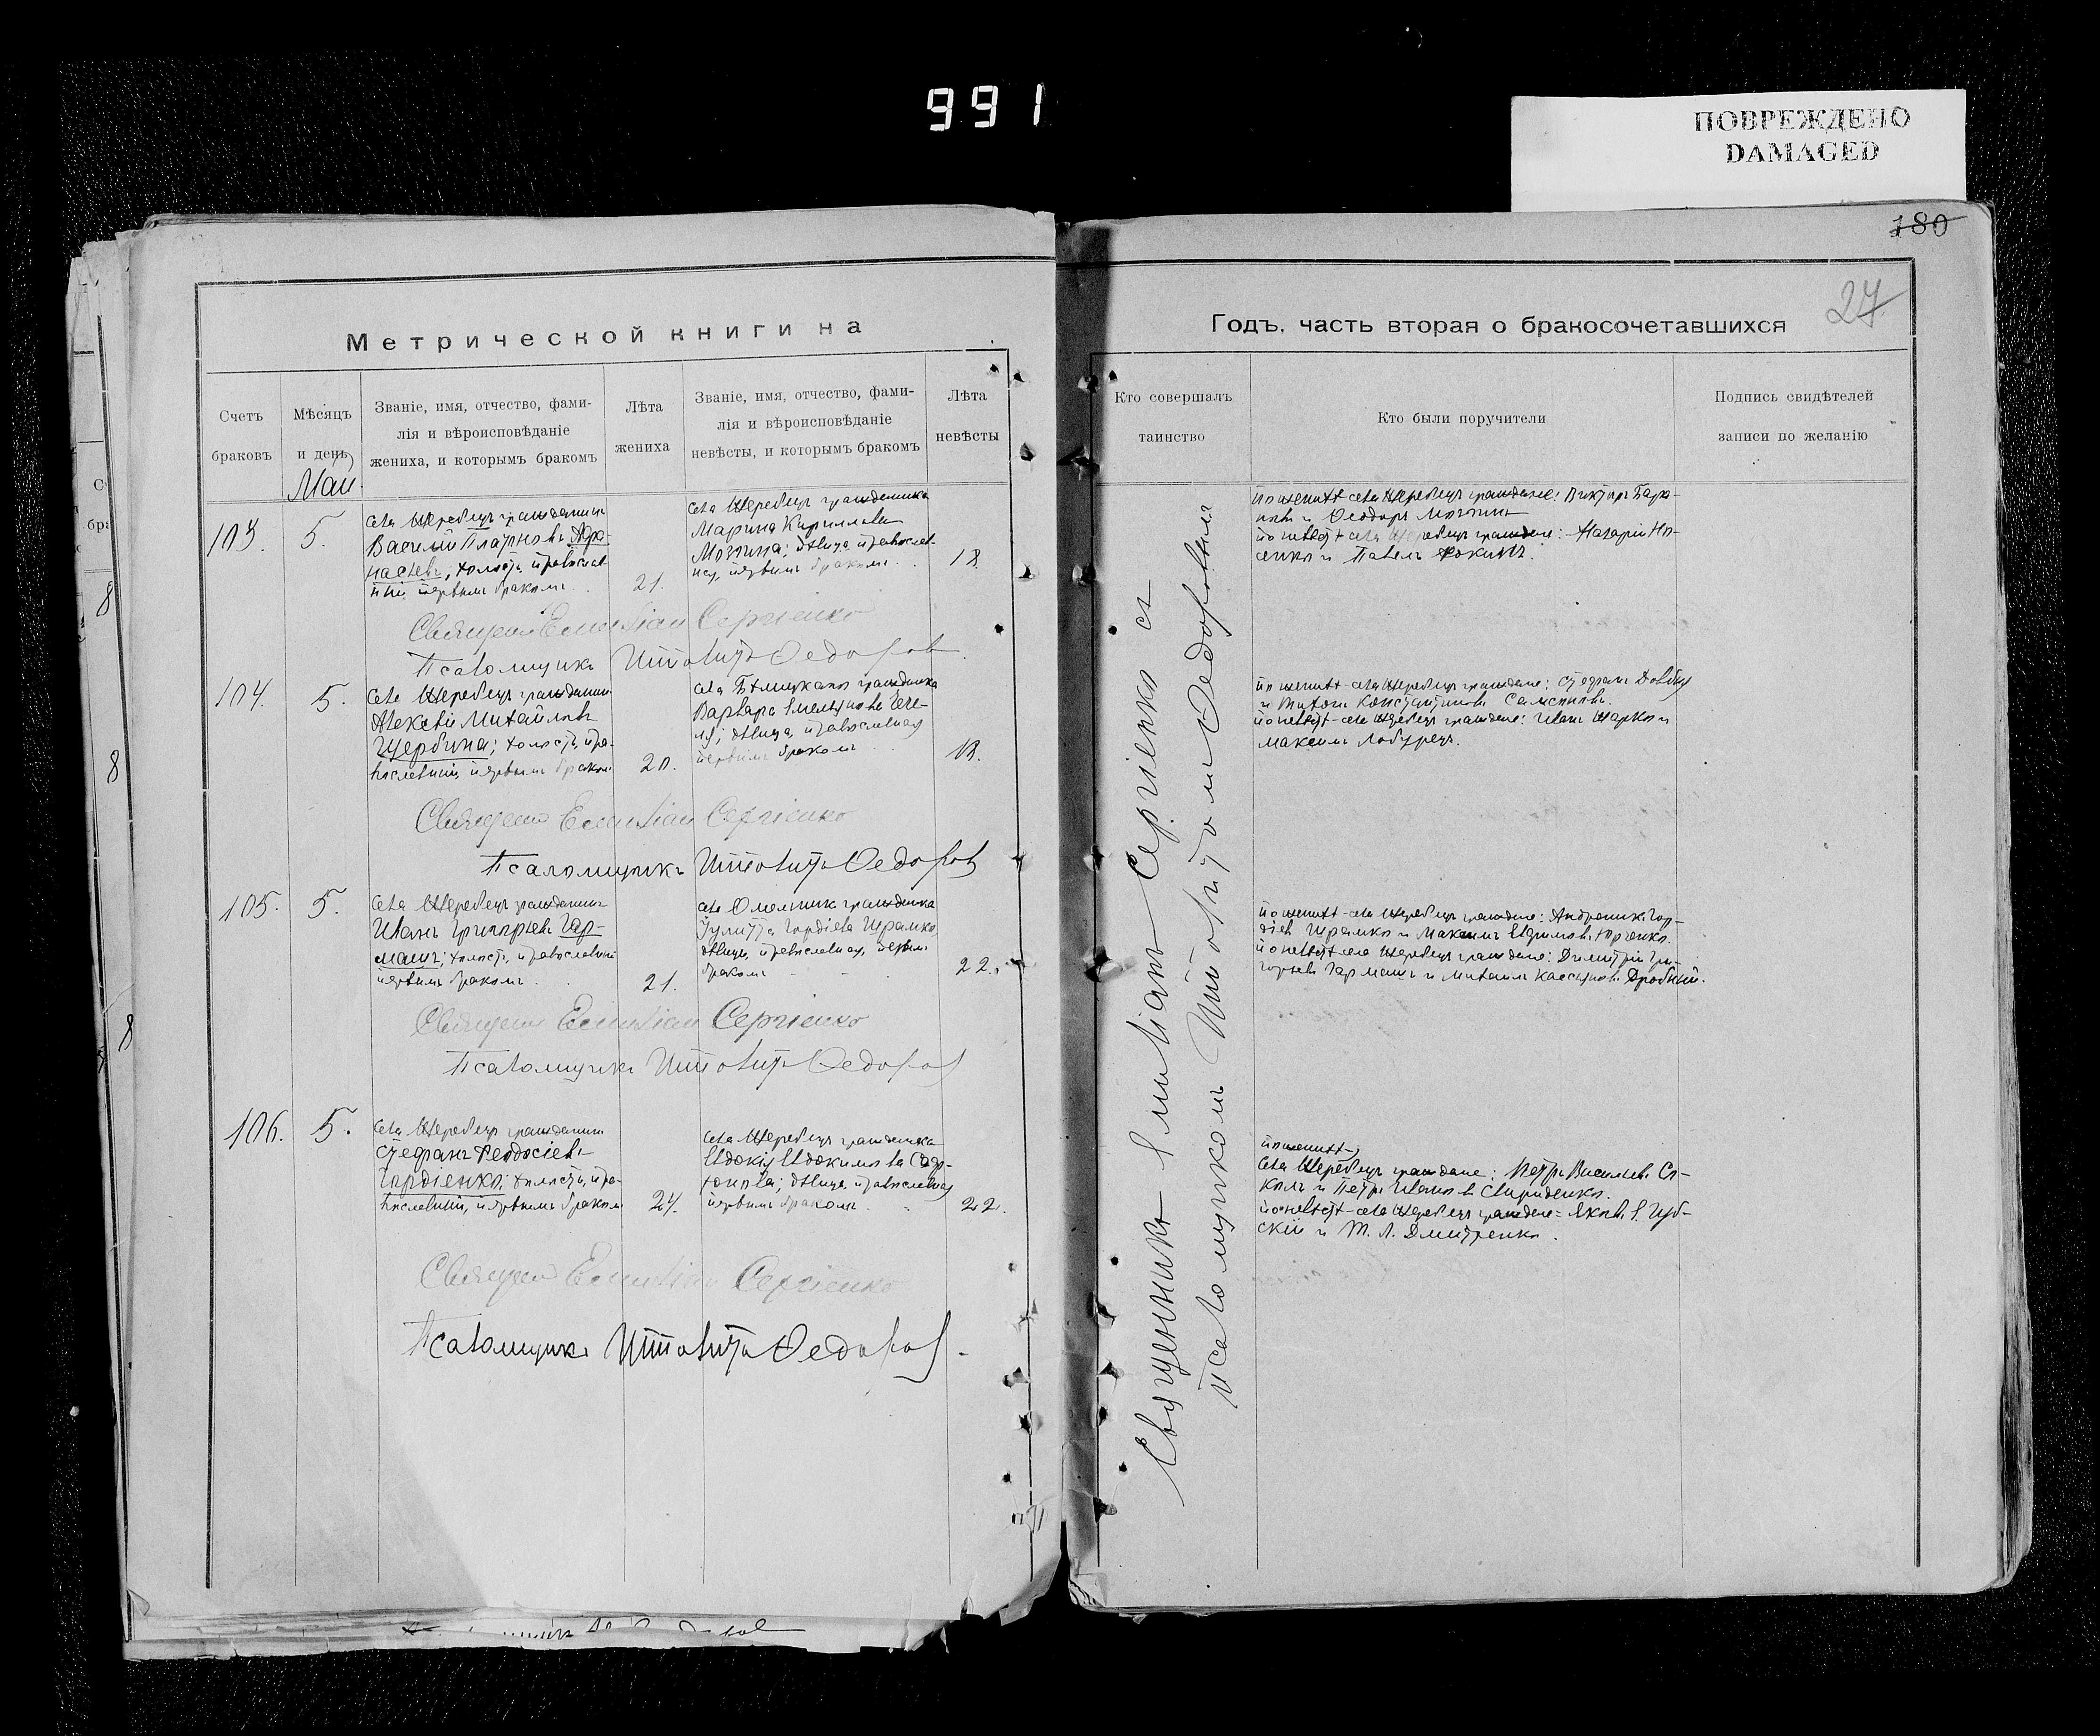 991
ПОВРЕЖДЕНО
DAMAGED
180
27
Метрической книги на
Годъ, часть вторая о бракосочетавшихся
Счетъ браковъ
Мѣсяцъ и день
Званіе, имя, отчество, фами-
лія и вѣроисповѣданіе
жениха, и которымъ бракомъ
Лѣта жениха
Званіе, имя, отчество, фами-
лія и вѣроисповѣданіе
невѣсты, и которымъ бракомъ
Лѣта невѣсты
Кто совершалъ таинство
Кто были поручители
Подпись свидѣтелей
записи по желанію
Май
103.
5.
села Жеребецъ гражданинъ
Василій Платоновъ
холостъ, православ-
ный, первымъ бракомъ
21.
села Жеребецъ гражданка
Марина Кириллова
дѣвица, православ-
ная, первымъ бракомъ
18
по женихѣ села Жеребецъ граждане: Викторъ
и Ѳеодоръ
по невѣстѣ села Жеребецъ граждане: Назарій Но-
сенко и Павелъ Фокинъ.
Священникъ Емиліан Сергіенко
Псаломщикъ Ипполитъ Федоров
104.
5.
села Жеребецъ гражданинъ
Алексѣй Михайловъ
Щербина; холостъ, пра-
вославный, первымъ бракомъ
20.
села гражданка
Варвара Емельянова
дѣвица, православная
первымъ бракомъ
18.
по женихѣ села Жеребецъ граждане: Стефанъ
и Титъ Константиновъ
по невѣстѣ села Жеребецъ граждане: Иванъ Шарко и
Максимъ
Священникъ Емиліан Сергіенко
Псаломщикъ Ипполитъ Федоров
105.
5.
села Жеребецъ гражданинъ
Иванъ Григорьевъ Гар-
машъ; холостъ, православный
первымъ бракомъ
21.
села Омельникъ гражданка
Іулитта Гордіева Шрамко
дѣвица, православная, первымъ
бракомъ
22.
по женихѣ села Жеребецъ граждане: Андроникъ Гор-
діевъ Шрамко и Максимъ Евфимовъ Юрченко.
по невѣстѣ села Жеребецъ граждане: Димитрій Гри-
горьевъ Гармашъ и Михаилъ Кассіановъ Дробный.
Священникъ Емиліан Сергіенко
Псаломщикъ Ипполитъ Федоров
106.
5.
села Жеребецъ гражданинъ
Стефанъ Ѳеодосіевъ
Гордіенко; холостъ, пра-
вославный, первымъ бракомъ
24.
села Жеребецъ гражданка
Евдокія Евдокимова
дѣвица, православная
первымъ бракомъ
22.
по женихѣ
села Жеребецъ граждане: Петръ Васильевъ Со-
колъ и Петръ Ивановъ Свириденко.
по невѣстѣ села Жеребецъ граждане: Яковъ Е. Чуб-
скій и Т. Л. Дмитренко.
Священникъ Емиліан Сергіенко
Псаломщикъ Ипполитъ Федоров
Священникъ Емиліанъ Сергіенко съ
псаломщикомъ Ипполитомъ Федоровымъ